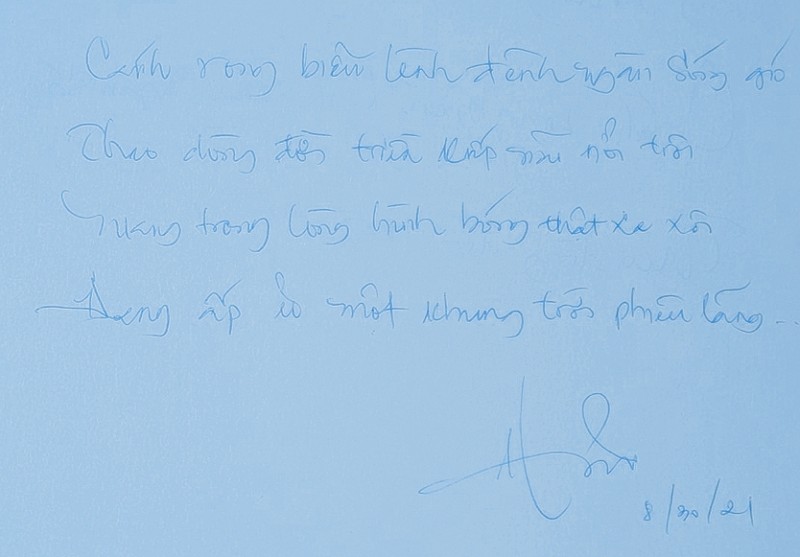 Cánh rong biển lênh đênh ngàn sóng gió
Theo dòng đời triền khắp nẻo nổi trôi
Mang trong lòng hình bóng thật xa xôi
Đang ấp ủ một khung trời phiêu lãng...
8/30/21